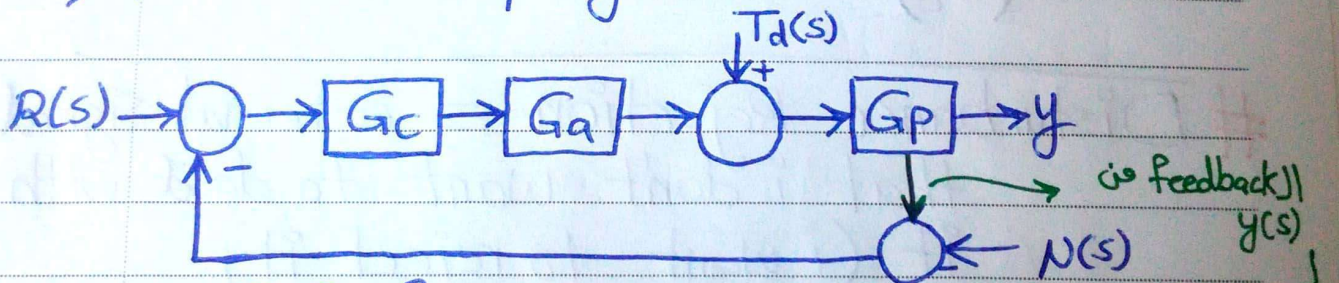 Td(s)
+
R(s) Gc Ga Gp y
-
الـ feedback من
y(s)
N(s)